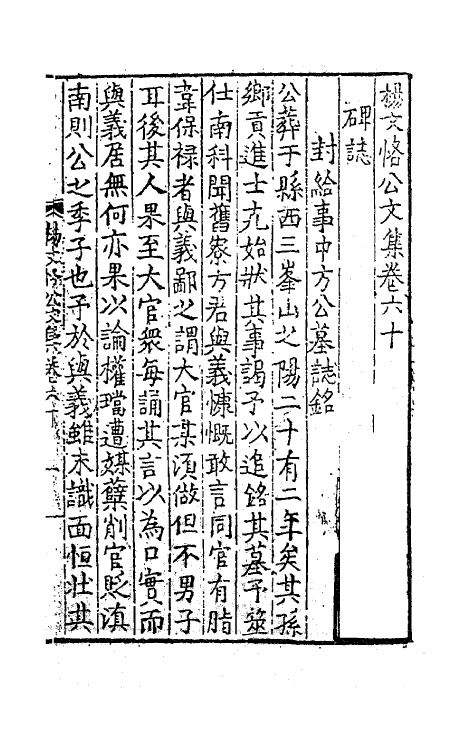 楊文恪公文集卷六十
碑誌
封給事中方公墓誌銘
公葬于縣西三峯山之陽二十有二年矣其孫
鄉貢進士克始狀其事謁予以追銘其墓予筮
仕南科聞舊寮方君與義慷慨敢言同官有脂
韋保祿者與義鄙之謂大官某須做但不男子
耳後其人果至大官衆每誦其言以為口實而
與義居無何亦果以論權璫遭媒糵削官貶滇
南則公之季子也予於與義雖未識面恒壯其
楊文恪公文集卷六十 一